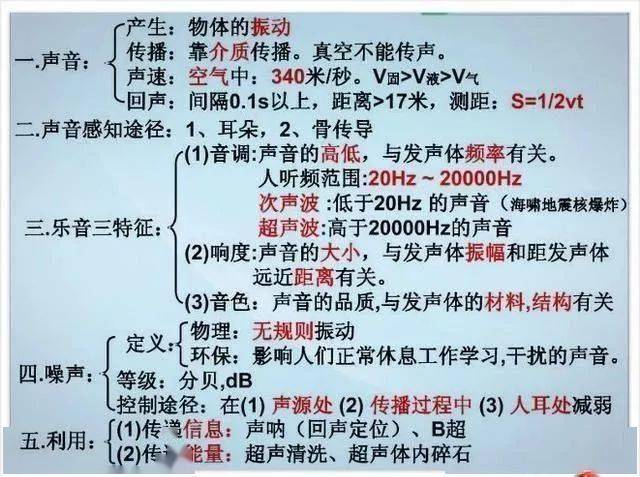 产生：物体的振动
传播：靠介质传播。真空不能传声。
一.声音：
声速：空气中：340米/秒。V固>V液>V气
回声：间隔0.1s以上，距离>17米，测距：S=1/2vt
二.声音感知途径：1、耳朵，2、骨传导
(1)音调:声音的高低，与发声体频率有关。
人听频范围:20Hz ~ 20000Hz
次声波 :低于20Hz 的声音（海啸地震核爆炸）
三.乐音三特征：
超声波:高于20000Hz的声音
(2)响度:声音的大小，与发声体振幅和距发声体
远近距离有关。
(3)音色：声音的品质,与发声体的材料,结构有关
物理：无规则振动
定义:
环保：影响人们正常休息工作学习,干扰的声音。
四.噪声：
等级：分贝,dB
控制途径：在(1) 声源处 (2) 传播过程中 (3) 人耳处减弱
五.利用：
(1)传递信息：声呐（回声定位）、B超
(2)传 能量：超声清洗、超声体内碎石